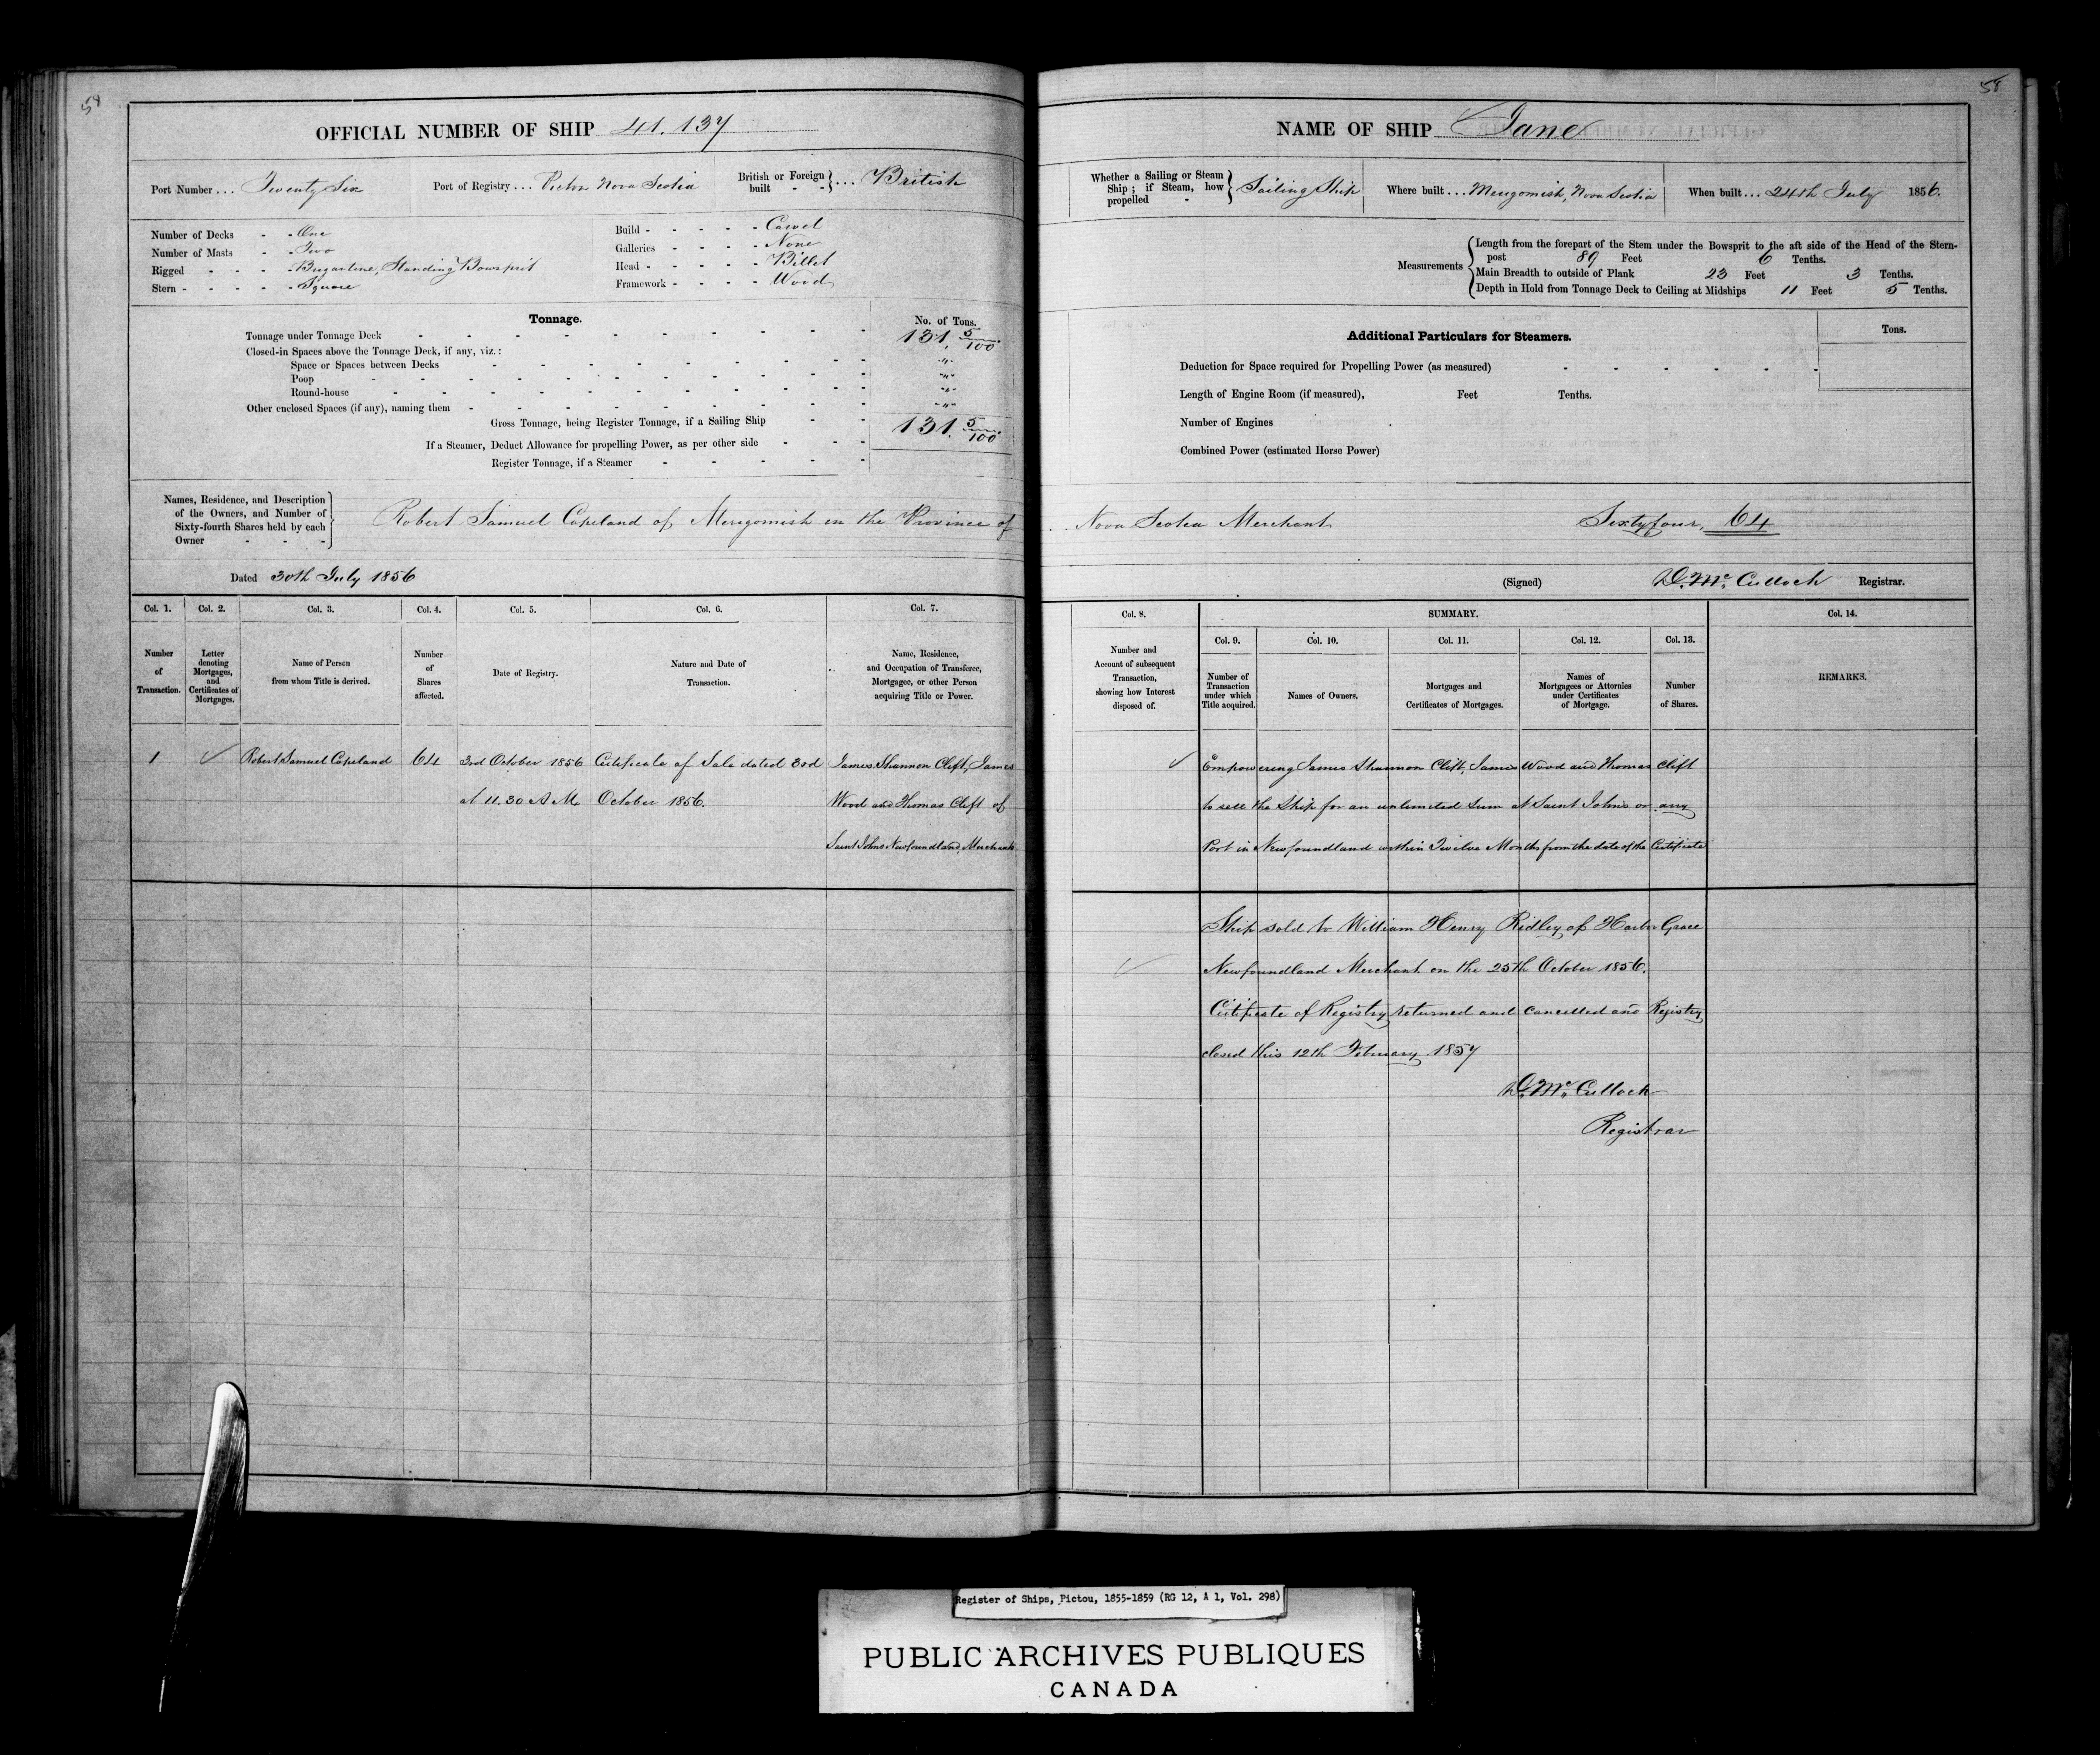 58
OFFICIAL NUMBER OF SHIP 41.137
Port Number ... Twenty Six
Port of Registry ... Pictou Nova Scotia
British or Foreign built - - } ... British
Number of Decks - - One
Number of Masts - - Two
Rigged - - - - Brigantine, Standing Bowsprit
Stern - - - - - Square
Build - - - - - Carvel
Galleries - - - - None
Head - - - - - Billet
Framework - - - - Wood
Tonnage.
No. of Tons.
Tonnage under Tonnage Deck 131. 5/100
Closed-in Spaces above the Tonnage Deck, if any, viz.:
Space or Spaces between Decks - " -
Poop - " -
Round-house - " -
Other enclosed Spaces (if any), naming them - " -
Gross Tonnage, being Register Tonnage, if a Sailing Ship 131. 5/100
If a Steamer, Deduct Allowance for propelling Power, as per other side
Register Tonnage, if a Steamer
Names, Residence, and Description
of the Owners, and Number of
Sixty-fourth Shares held by each
Owner - - -
Robert Samuel Copeland of Merigomish in the Province of
Dated 30th July 1856
Col. 1. Col. 2. Col. 3. Col. 4. Col. 5. Col. 6. Col. 7.
Number of Transaction.
Letter denoting Mortgages, and Certificates of Mortgages.
Name of Person from whom Title is derived.
Number of Shares affected.
Date of Registry.
Nature and Date of Transaction.
Name, Residence, and Occupation of Transferee, Mortgagee, or other Person acquiring Title or Power.
1 Robert Samuel Copeland 64 3rd October 1856 Certificate of Sale dated 3rd James Shannon Clift, James
at 11.30 A M. October 1856. Wood and Thomas Clift of
Saint Johns Newfoundland, Merchants
58
NAME OF SHIP Jane
Whether a Sailing or Steam Ship; if Steam, how propelled - } Sailing Ship
Where built ... Merigomish, Nova Scotia
When built ... 24th July 1856.
Measurements
Length from the forepart of the Stem under the Bowsprit to the aft side of the Head of the Stern-
post 89 Feet 6 Tenths.
Main Breadth to outside of Plank 23 Feet 3 Tenths.
Depth in Hold from Tonnage Deck to Ceiling at Midships 11 Feet 5 Tenths.
Additional Particulars for Steamers.
Tons.
Deduction for Space required for Propelling Power (as measured)
Length of Engine Room (if measured), Feet Tenths.
Number of Engines
Combined Power (estimated Horse Power)
Nova Scotia Merchant Sixty four, 64
(Signed) D. Mc Culloch Registrar.
Col. 8. SUMMARY. Col. 14.
Col. 9. Col. 10. Col. 11. Col. 12. Col. 13.
Number and Account of subsequent Transaction, showing how Interest disposed of.
Number of Transaction under which Title acquired.
Names of Owners.
Mortgages and Certificates of Mortgages.
Names of Mortgagees or Attornies under Certificates of Mortgage.
Number of Shares.
REMARKS.
Empowering James Shannon Clift, James Wood and Thomas Clift
to sell the Ship for an unlimited Sum at Saint Johns or any
Port in Newfoundland within Twelve Months from the date of the Certificate
Ship sold to William Henry Ridley of Harbor Grace
Newfoundland Merchant on the 25th October 1856.
Certificate of Registry returned and cancelled and Registry
closed this 12th February 1857
D. Mc Culloch
Registrar
Register of Ships, Pictou, 1855-1859 (RG 12, A 1, Vol. 298)
PUBLIC ARCHIVES PUBLIQUES
CANADA